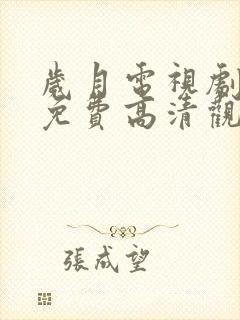 歲月電視劇
免費高清觀
張成望